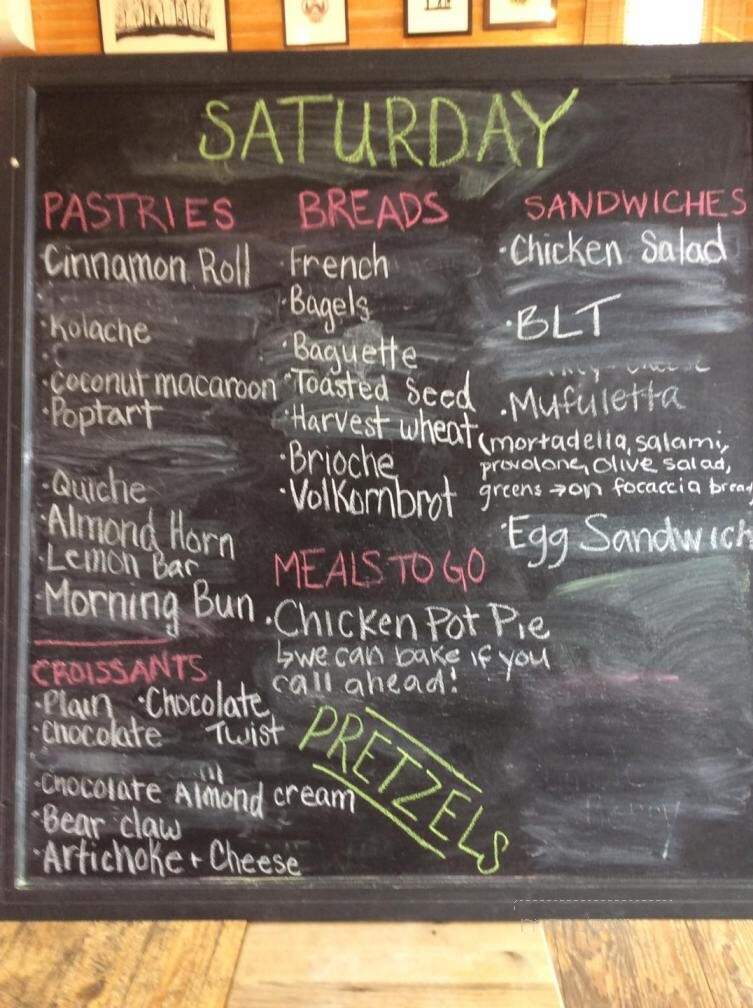 SATURDAY
PASTRIES
·Cinnamon Roll
·Kolache
·Coconut macaroon
·Poptart
·Quiche
·Almond Horn
·Lemon Bar
·Morning Bun
CROISSANTS
·Plain ·Chocolate
·Chocolate Twist
·Chocolate Almond cream
·Bear claw
·Artichoke + Cheese
BREADS
·French
·Bagels
·Baguette
·Toasted Seed
·Harvest wheat
·Brioche
·VolKornbrot
MEALS TO GO
·Chicken Pot Pie
↳we can bake if you
call ahead!
PRETZELS
SANDWICHES
·Chicken Salad
·BLT
·Mufuletta
(mortadella, salami,
provolone, olive salad,
greens →on focaccia bread
·Egg Sandwich